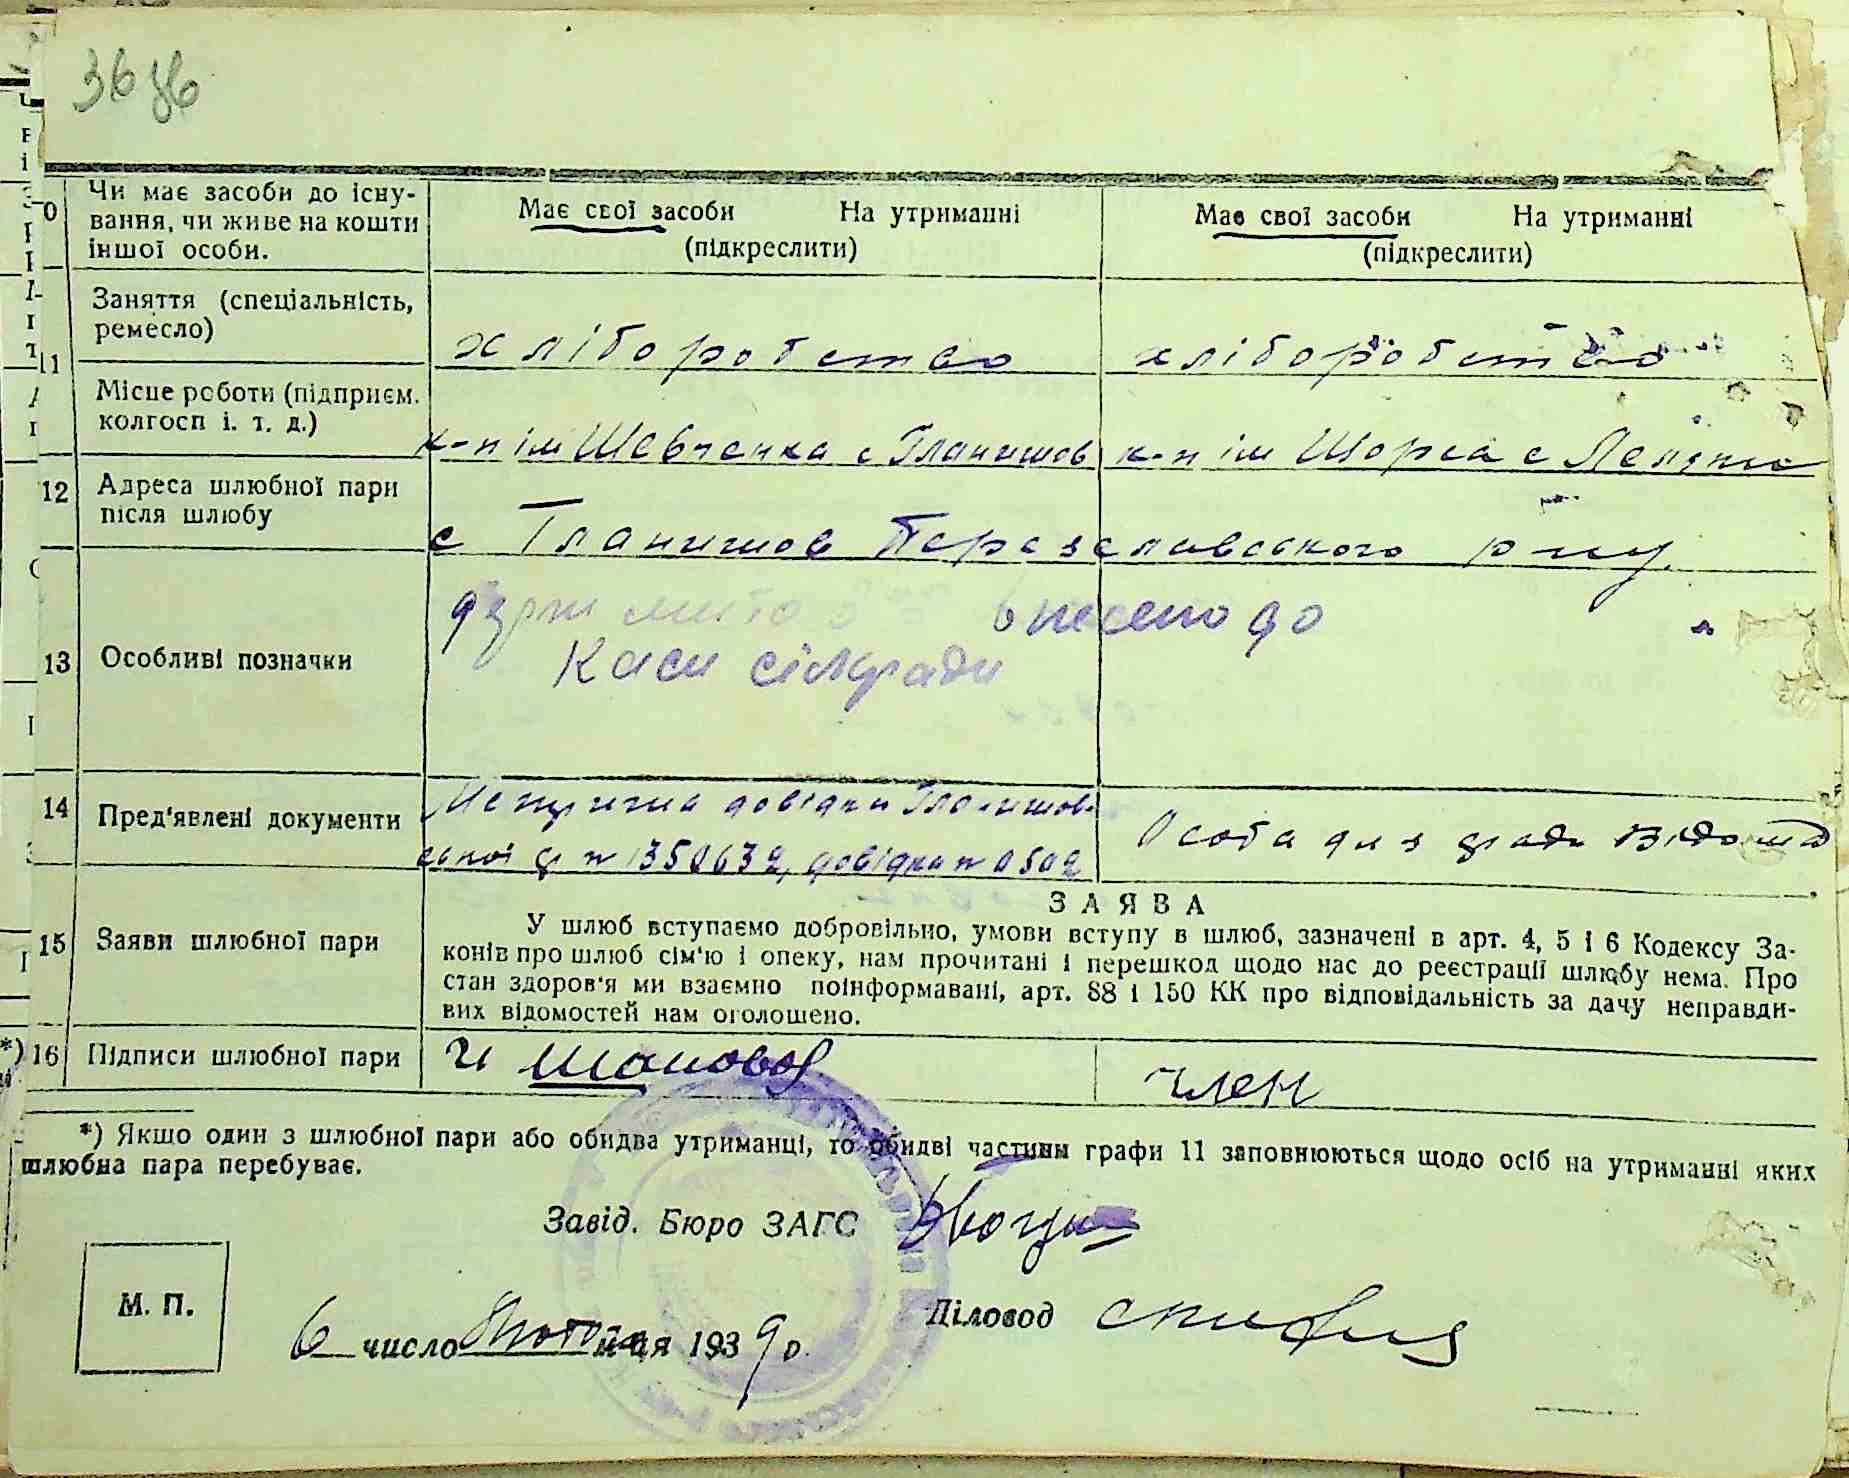 36 зв
10 Чи має засоби до існу-
вання, чи живе на кошти
іншої особи.
Має свої засоби На утриманні
(підкреслити)
Має свої засоби На утриманні
(підкреслити)
11 Заняття (спеціальність,
ремесло)
хліборобство
хліборобство
Місце роботи (підприєм.
колгосп і. т. д.)
к-п ім Шевченка с Гланишов
к-п ім Щорса с
12 Адреса шлюбної пари
після шлюбу
с Гланишов Переяславського р-ну
13 Особливі позначки
держ мито внесено до
Каси сільради
14 Пред'явлені документи
Метрична довідка Гланишов-
ської с/р № 1350632, довідка № 0502
Особа для с/ради відома
15 Заяви шлюбної пари
ЗАЯВА
У шлюб вступаємо добровільно, умови вступу в шлюб, зазначені в арт. 4, 5 і 6 Кодексу За-
конів про шлюб сім'ю і опеку, нам прочитані і перешкод щодо нас до реєстрації шлюбу нема. Про
стан здоров'я ми взаємно поінформавані, арт. 88 і 150 КК про відповідальність за дачу неправди-
вих відомостей нам оголошено.
*) 16 Підписи шлюбної пари
член
*) Якщо один з шлюбної пари або обидва утриманці, то обидві частини графи 11 заповнюються щодо осіб на утриманні яких
шлюбна пара перебуває.
Завід. Бюро ЗАГС
М. П.
6 число Лютого м-ця 1939 р.
Діловод